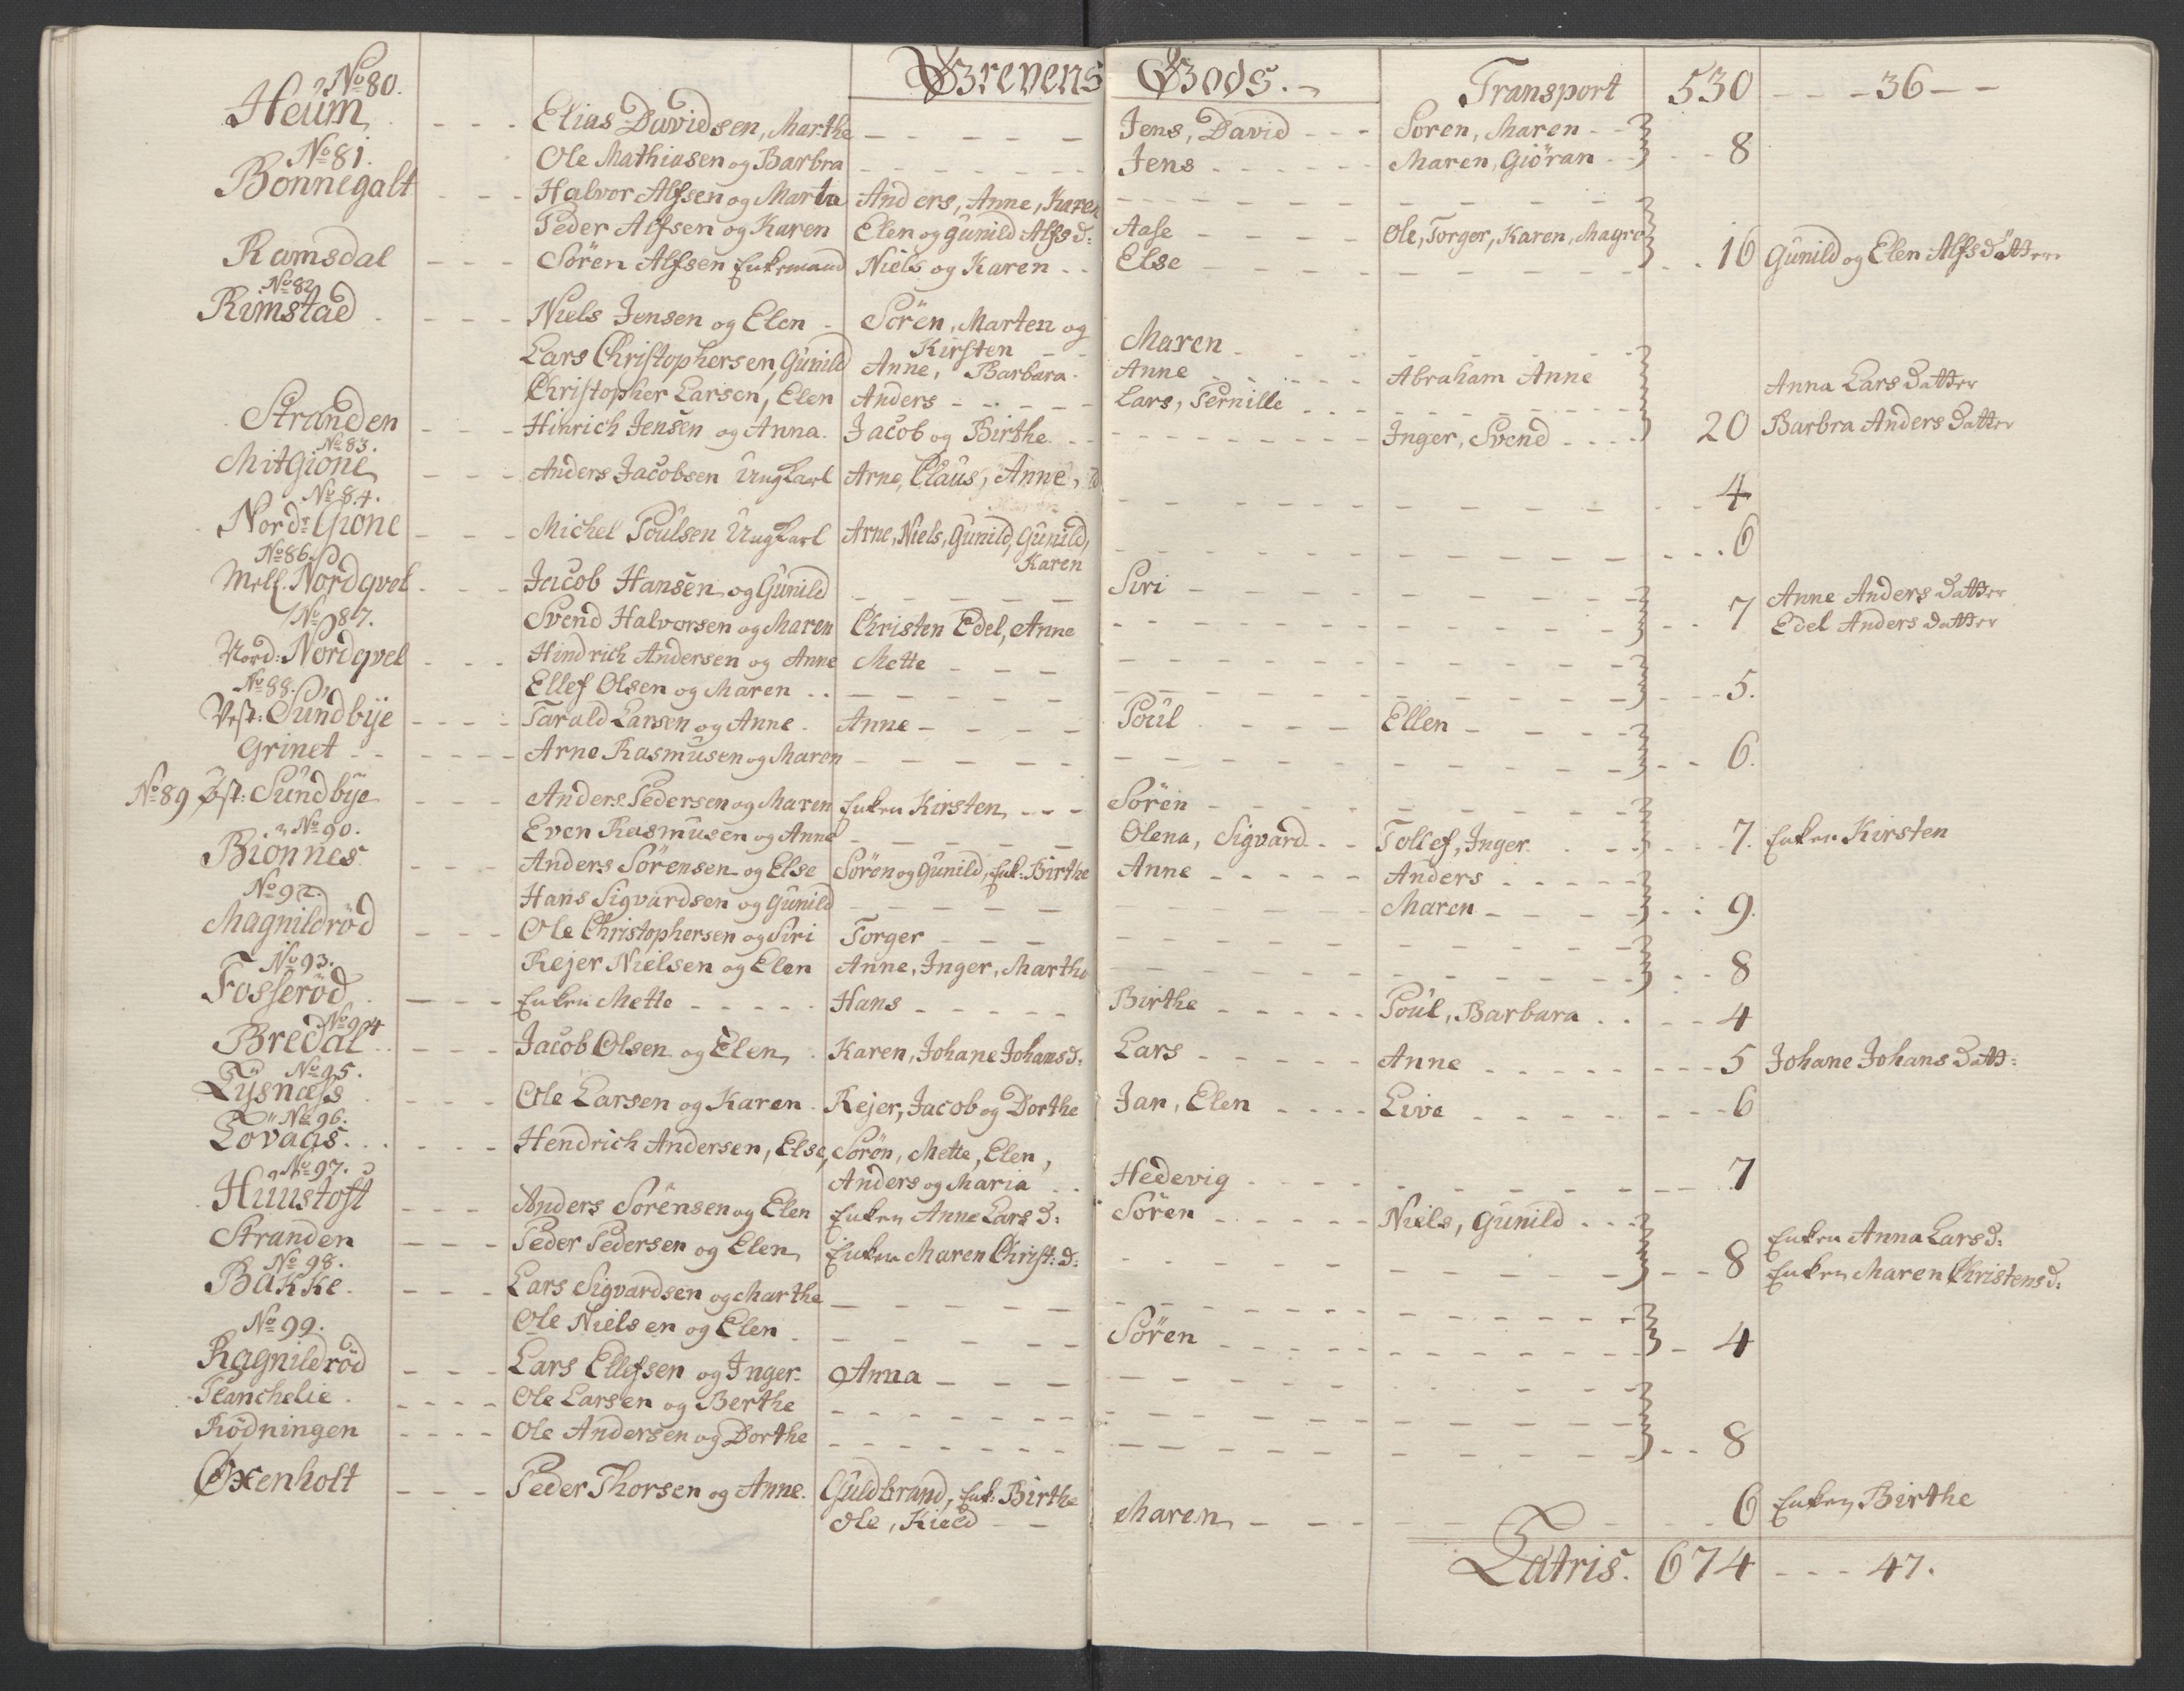 Grevens Gods. Transport 530 - - - 36 - -
No 80.
Heüm - - - Elias Davidsen, Marthe - - - Jens, David - - - Sören, Maren - -
No 81. Ole Mathiasen og Barbra - - - Jens - - - Maren, Giöran - - 8
Bonnegalt - - - Halvor Alfsen og Marta Anders, Anne, Karen - - -
Peder Alfsen og Karen Elen og Gunild Alfs d: Aase - - - Ole, Torger, Karen, Magre
Ramsdal - - - Sören Alfsen Enkemand Niels og Karen - - Else - - - 16 Günild og Elen Alfsdätter
No 82
Rimstad - - - Niels Jensen og Elen - Sören, Marten og
Kirsten - - Maren - - -
Lars Christophersen, Günild Anne, Barbara - Anne - - - Abraham Anne Anna Lars datter
Christopher Larsen, Elen Anders - - - Lars, Pernille - - -
Stranden - - - Hinrich Jensen og Anna. Jacob og Birthe - - - Inger, Svend - - - 20 Barbra Anders datter
No 83.
Mitgione - - - Anders Jacobsen Ungkarl Arne, Claus, Anne, - - - 4
No 84.
Nord: Gione - - - Michel Poulsen Ungkarl Arne, Niels, Günild, Günild, - - - 6
Karen
No 86.
Mell. Nordqvel - - - Jacob Hansen og Günild - - - Siri - - - Anne Anders datter
No 87. Svend Halvorsen og Maren Christen Edel, Anne - - - 7 Edel Anders datter
Nord: Nordqvel - - - Hindrich Andersen og Anne Mette - - -
No 88. Ellef Olsen og Maren - - - 5.
Vest: Sundbÿe - - - Tarald Larsen og Anne. Anne - - - Poül - - - Ellen - - -
Grinet - - - Arne Rasmüsen og Maren - - - 6.
No 89 Öst: Sündbÿe - - - Anders Pedersen og Maren Enken Kirsten - - - Sören - - -
No 90. Even Rasmüsen og Anne - - - Olena, Sigvard - - Tollef, Inger - - - 7. Enken Kirsten
Bionnes - - - Anders Sörensen og Else Sören og Günild, Enk: Birthe Anne - - - Anders - - -
No 92. Hans Sigvardsen og Günild - - - Maren - - - 9.
Magnildröd - - - Ole Christophersen og Siri Torger - - -
No 93. Rejer Nielsen og Elen Anne, Inger, Marthe - - - 8
Fosseröd - - - Enken Mette - - - Hans - - - Birthe - - - Poül, Barbara - - - 4
No 94
Bredal - - - Jacob Olsen og Elen - Karen, Johane Johans d: Lars - - - Anne - - - 5 Johane Johans datt:
No 95.
Lysnæss - - - Ole Larsen og Karen - Rejer, Jacob og Dorthe Jan, Elen - - - Live - - - 6
No 96.
Lövaas - - - Hendrich Andersen, Else, Sören, Mette, Elen,
No 97. Anders og Maria - - Hedevig - - - 7
Hüüstoft - - - Anders Sörensen og Elen Enken Anne Lars d: Sören - - - Niels, Günild - - - Enken Anna Lars d:
Stranden - - - Peder Pedersen og Elen Enken Maren Christ: d: - - - 8 Enken Maren Christens d:
No 98.
Bakke - - - Lars Sigvardsen og Marthe - - -
No 99. Ole Nielsen og Elen - - - Sören - - - 4
Ragnildröd - - - Lars Ellefsen og Inger - Anna - - -
Planchelie - - - Ole Larsen og Berthe - - -
Rödningen - - - Ole Andersen og Dorthe - - - 8
Oxenholt - - - Peder Thorsen og Anne. Güldbrand, Enk: Birthe
Ole, Kield - - Maren - - - 6 Enken Birthe
Latris. 674 - - - 47.